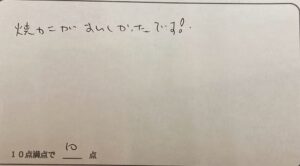 焼カニがおいしかったです!
10点満点で 10 点